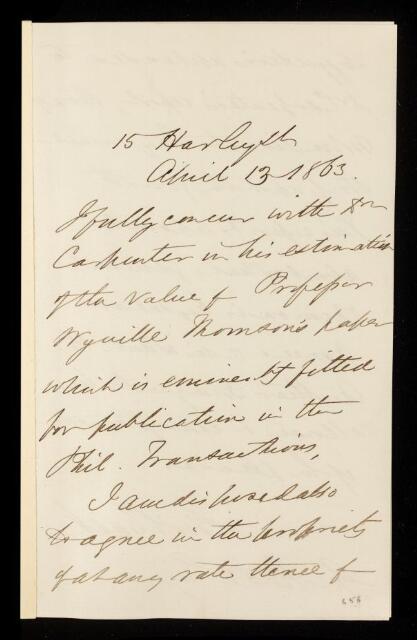 15 Harley St
April 13 1863.
I fully concur with Dr
Carpenter in his estimation
of the value of Professor
Wyville Thomson's paper
which is eminently fitted
for publication in the
Phil. Transactions,
I am disposed also
to agree in the propriety
of at any rate three of
656